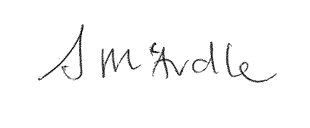 S McArdle